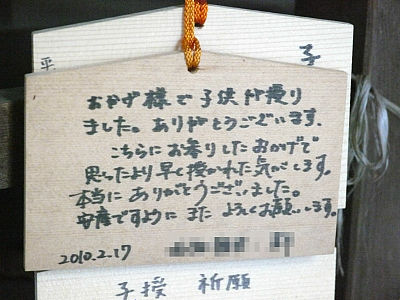 子
平
おかげ様で子供が授り
ました。ありがとうございます。
こちらにお寄りしたおかげで
思ったより早く授かれた気がします。
本当にありがとうございました。
安産ですようにまたよろしくお願いします。
2010.2.17
子授 祈願